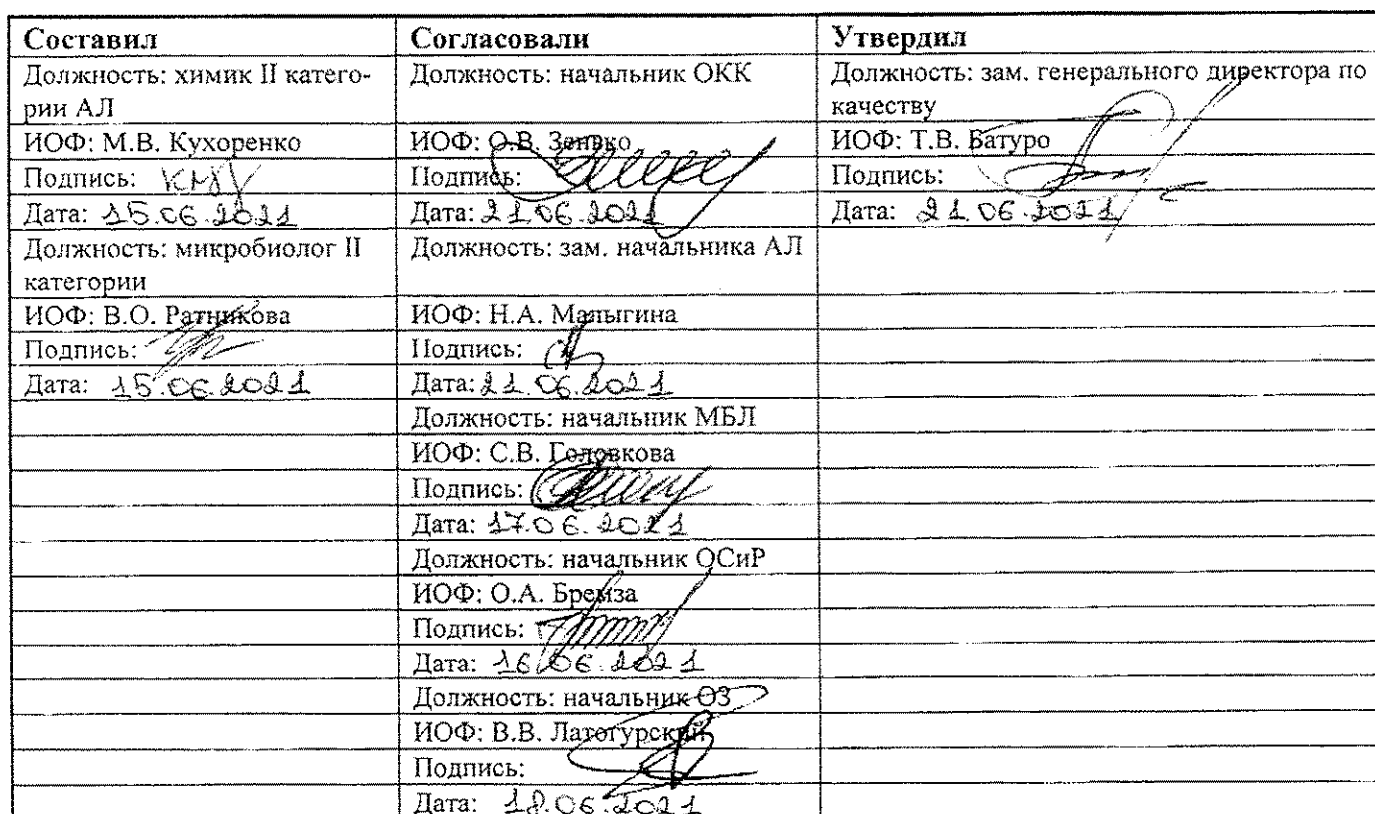 Составил Согласовали Утвердил
Должность: химик II катего- Должность: начальник ОКК Должность: зам. генерального директора по
рии АЛ качеству
ИОФ: М.В. Кухоренко ИОФ: О.В. Зенько ИОФ: Т.В. Батуро
Подпись: Подпись: Подпись:
Дата: 15.06.2021 Дата: 21.06.2021 Дата: 21.06.2021
Должность: микробиолог II Должность: зам. начальника АЛ
категории
ИОФ: В.О. Ратникова ИОФ: Н.А. Малыгина
Подпись: Подпись:
Дата: 15.06.2021 Дата: 21.06.2021
Должность: начальник МБЛ
ИОФ: С.В. Головкова
Подпись:
Дата: 17.06.2021
Должность: начальник ОСиР
ИОФ: О.А. Бремза
Подпись:
Дата: 16.06.2021
Должность: начальник ОЗ
ИОФ: В.В. Латогурский
Подпись:
Дата: 18.06.2021